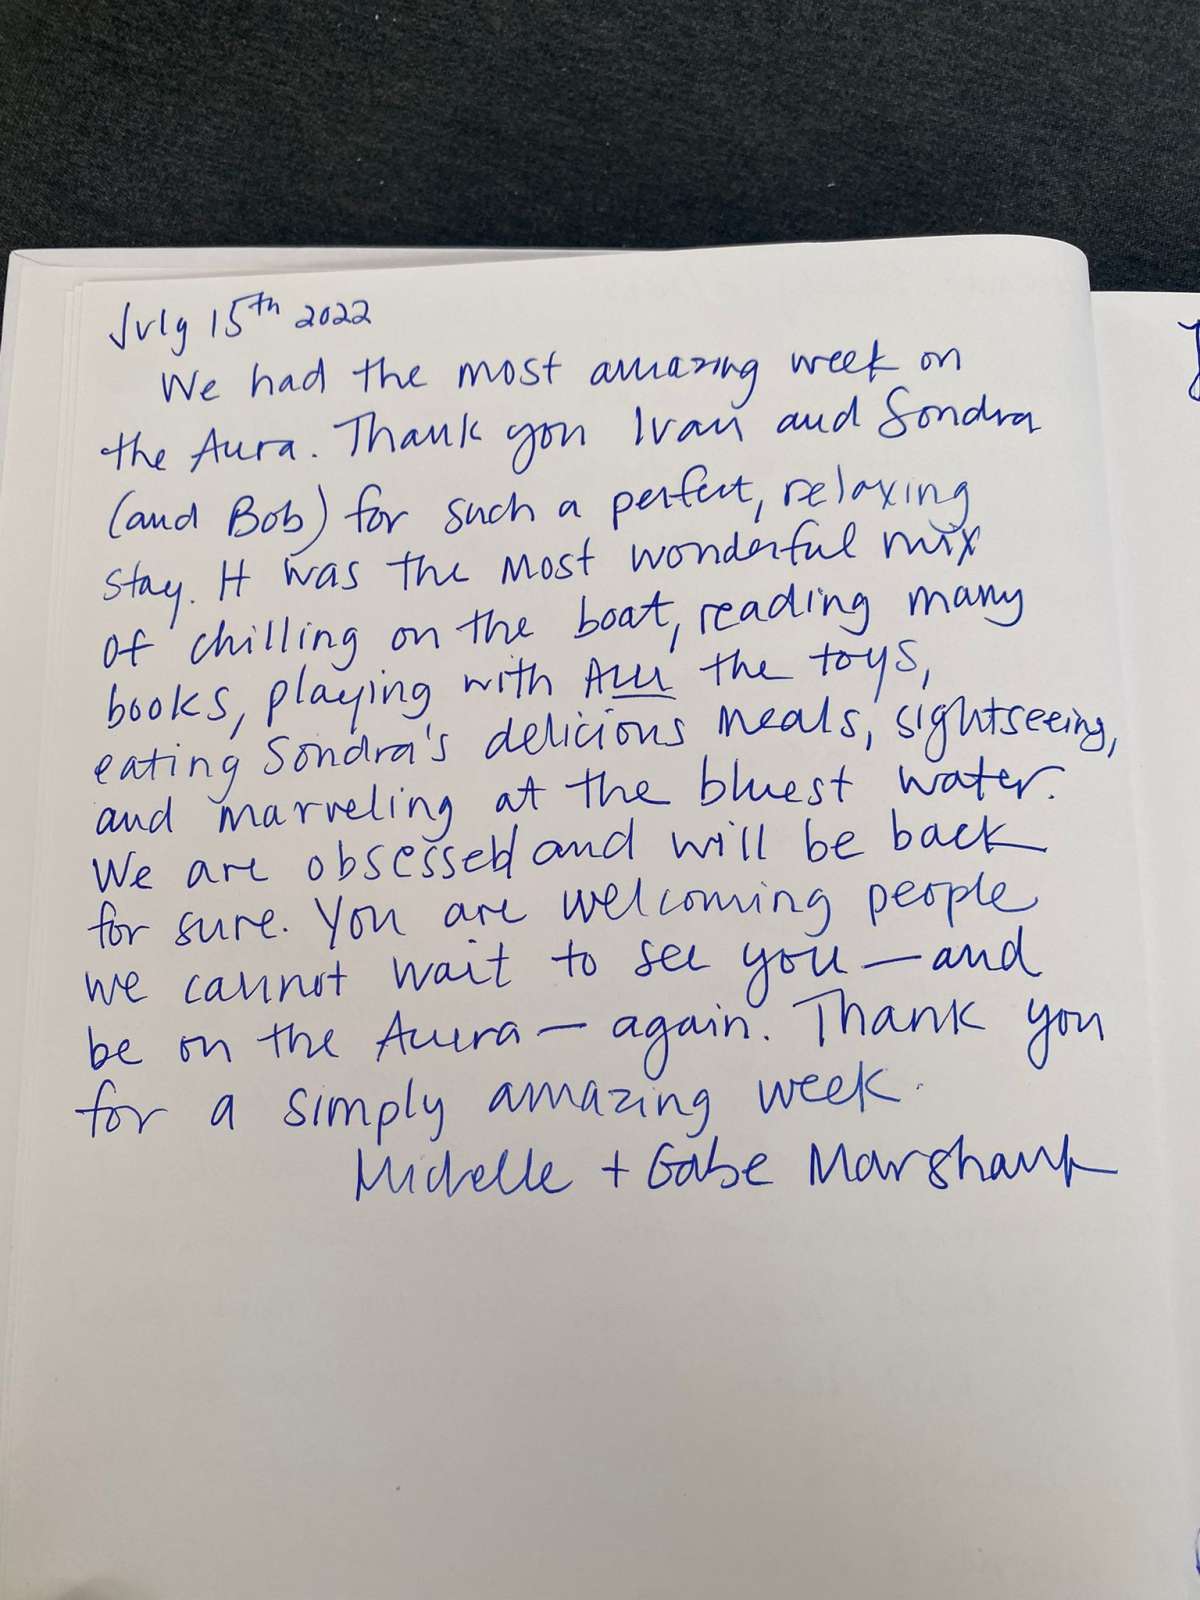 July 15th 2022
We had the most amazing week on
the Aura. Thank you Ivan and Sondra
(and Bob) for such a perfect, relaxing
stay. It was the most wonderful mix
of chilling on the boat, reading many
books, playing with All the toys,
eating Sondra's delicious meals, sightseeing,
and marveling at the bluest water.
We are obsessed and will be back
for sure. You are welcoming people
we cannot wait to see you — and
be on the Aura — again. Thank you
for a simply amazing week.
Michelle + Gabe Marshank